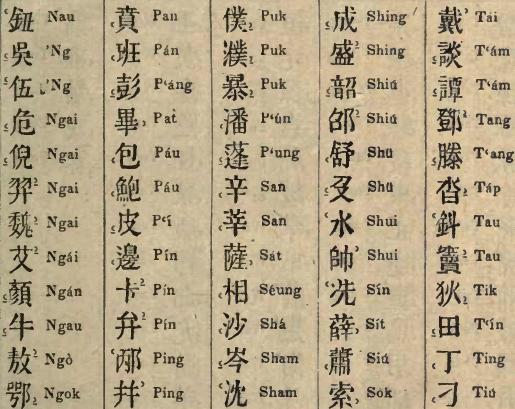 鈕 Nau
吳 'Ng
伍 'Ng
危 Ngai
倪 Ngai
羿 Ngai
魏 Ngai
艾 Ngái
顏 Ngán
牛 Ngau
敖 Ngò
鄂 Ngok
賁 Pan
班 Pán
彭 P'áng
畢 Pat
包 Páu
鮑 Páu
皮 P'í
邊 Pín
卞 Pín
弁 Pín
邴 Ping
幷 Ping
僕 Puk
濮 Puk
暴 Puk
潘 P'ún
蓬 P'ung
辛 San
莘 San
薩 Sát
相 Séung
沙 Shá
岑 Sham
沈 Sham
成 Shing
盛 Shing
韶 Shiú
邵 Shiú
舒 Shü
殳 Shü
水 Shui
帥 Shui
冼 Sín
薛 Sít
蕭 Siú
索 Sok
戴 Tái
談 T'ám
譚 T'ám
鄧 Tang
滕 T'ang
沓 Táp
鈄 Tau
竇 Tau
狄 Tik
田 T'ín
丁 Ting
刁 Tiú